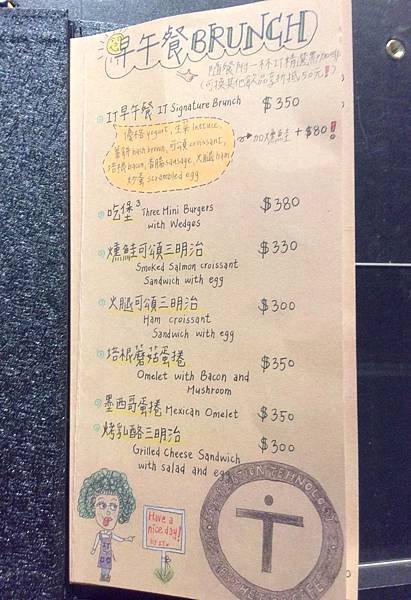 早午餐 BRUNCH
隨餐附一杯IT精選
(可換其他飲品享折抵50元!)
IT早午餐 IT Signature Brunch $350
優格 yogurt, 生菜 lettuce,
薯餅 hash brown, 可頌 croissant,
培根 bacon, 香腸 sausage, 火腿 ham
炒蛋 scrambled egg
加燻鮭 + $80!
吃堡³ Three Mini Burgers $380
with Wedges
燻鮭可頌三明治 $330
Smoked Salmon croissant
Sandwich with egg
火腿可頌三明治 $300
Ham croissant
Sandwich with egg
培根蘑菇蛋捲 $350
Omelet with Bacon and
Mushroom
墨西哥蛋捲 Mexican Omelet $350
烤乳酪三明治 $300
Grilled Cheese Sandwich
with salad and egg
Have a
nice day!
IT
TECHNOLOGY